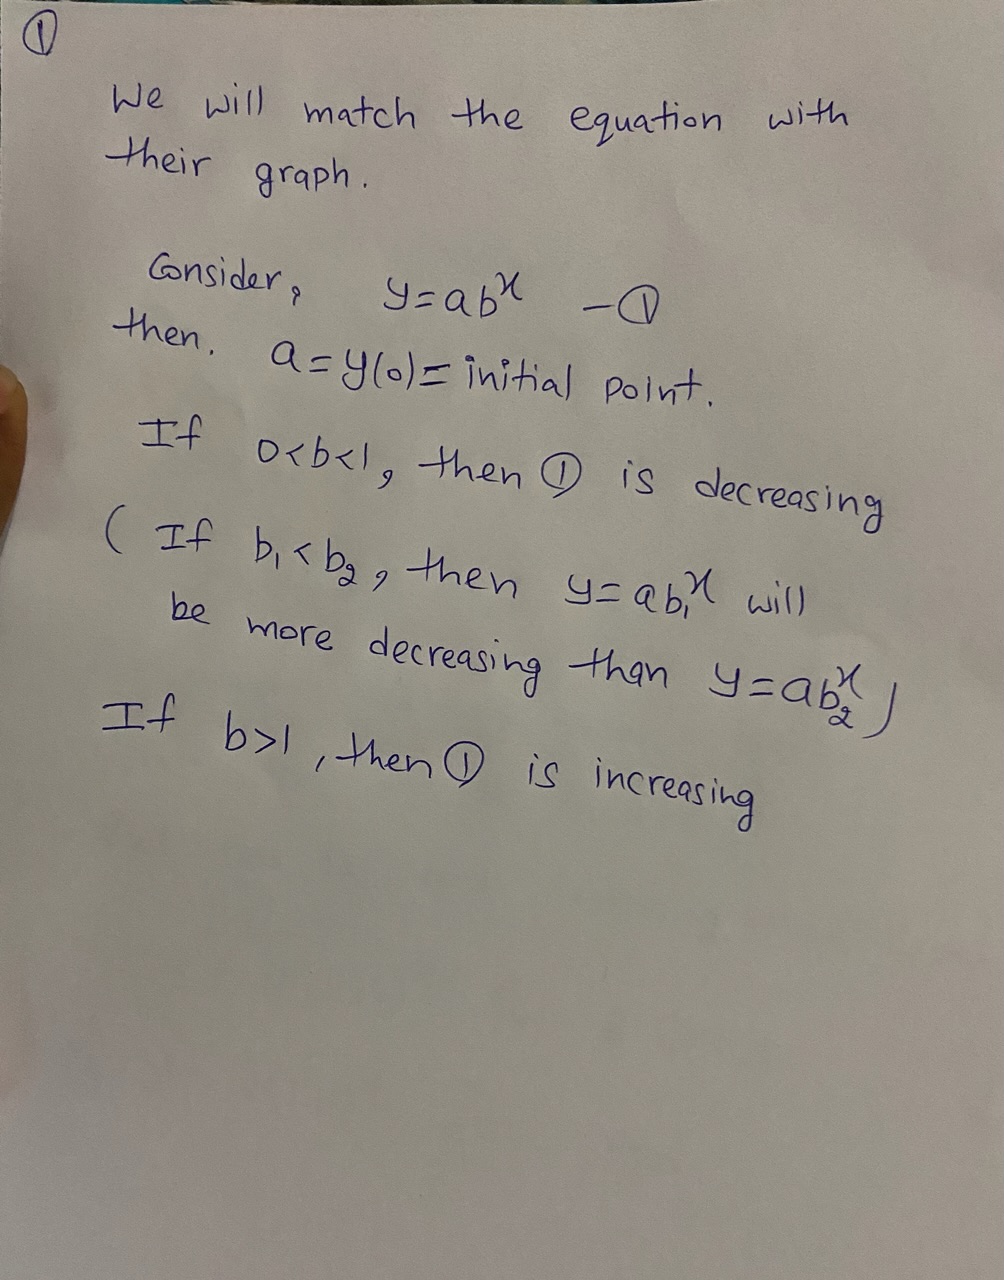 ①
We will match the equation with
their graph.
Consider, y=abˣ -①
then. a=y(0)= initial point.
If 0<b<1, then ① is decreasing
( If b₁<b₂, then y=ab₁ˣ will
be more decreasing than y=ab₂ˣ)
If b>1, then ① is increasing